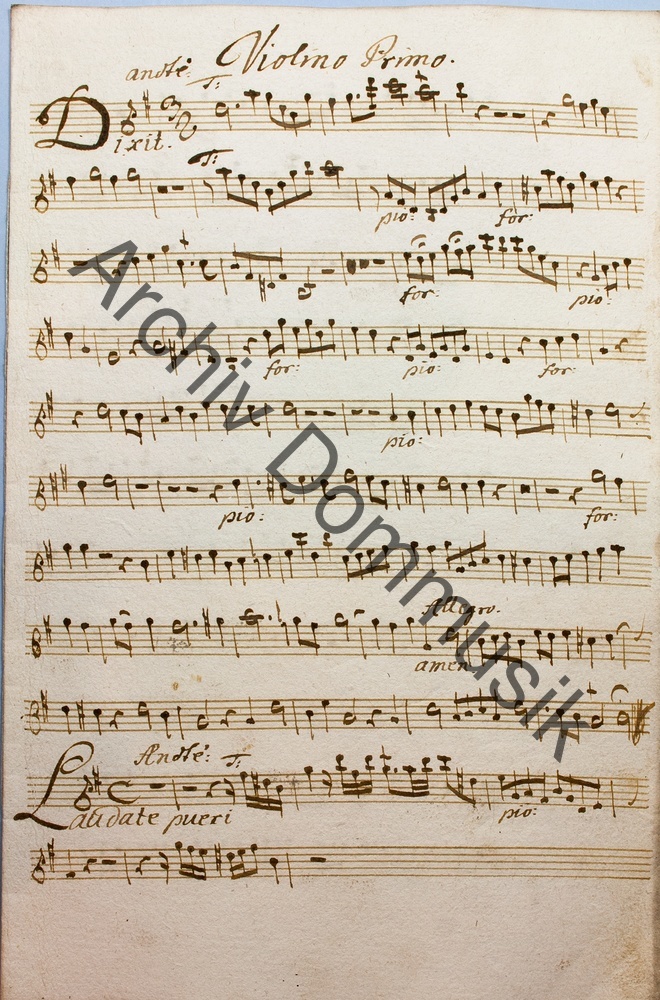 Violino Primo.
andte: T:
Dixit.
T:
pio: for:
for: pio:
for: pio: for:
pio:
pio: for:
Allegro.
amen
Andte: T:
Laudate pueri
pio:
Archiv Dommusik